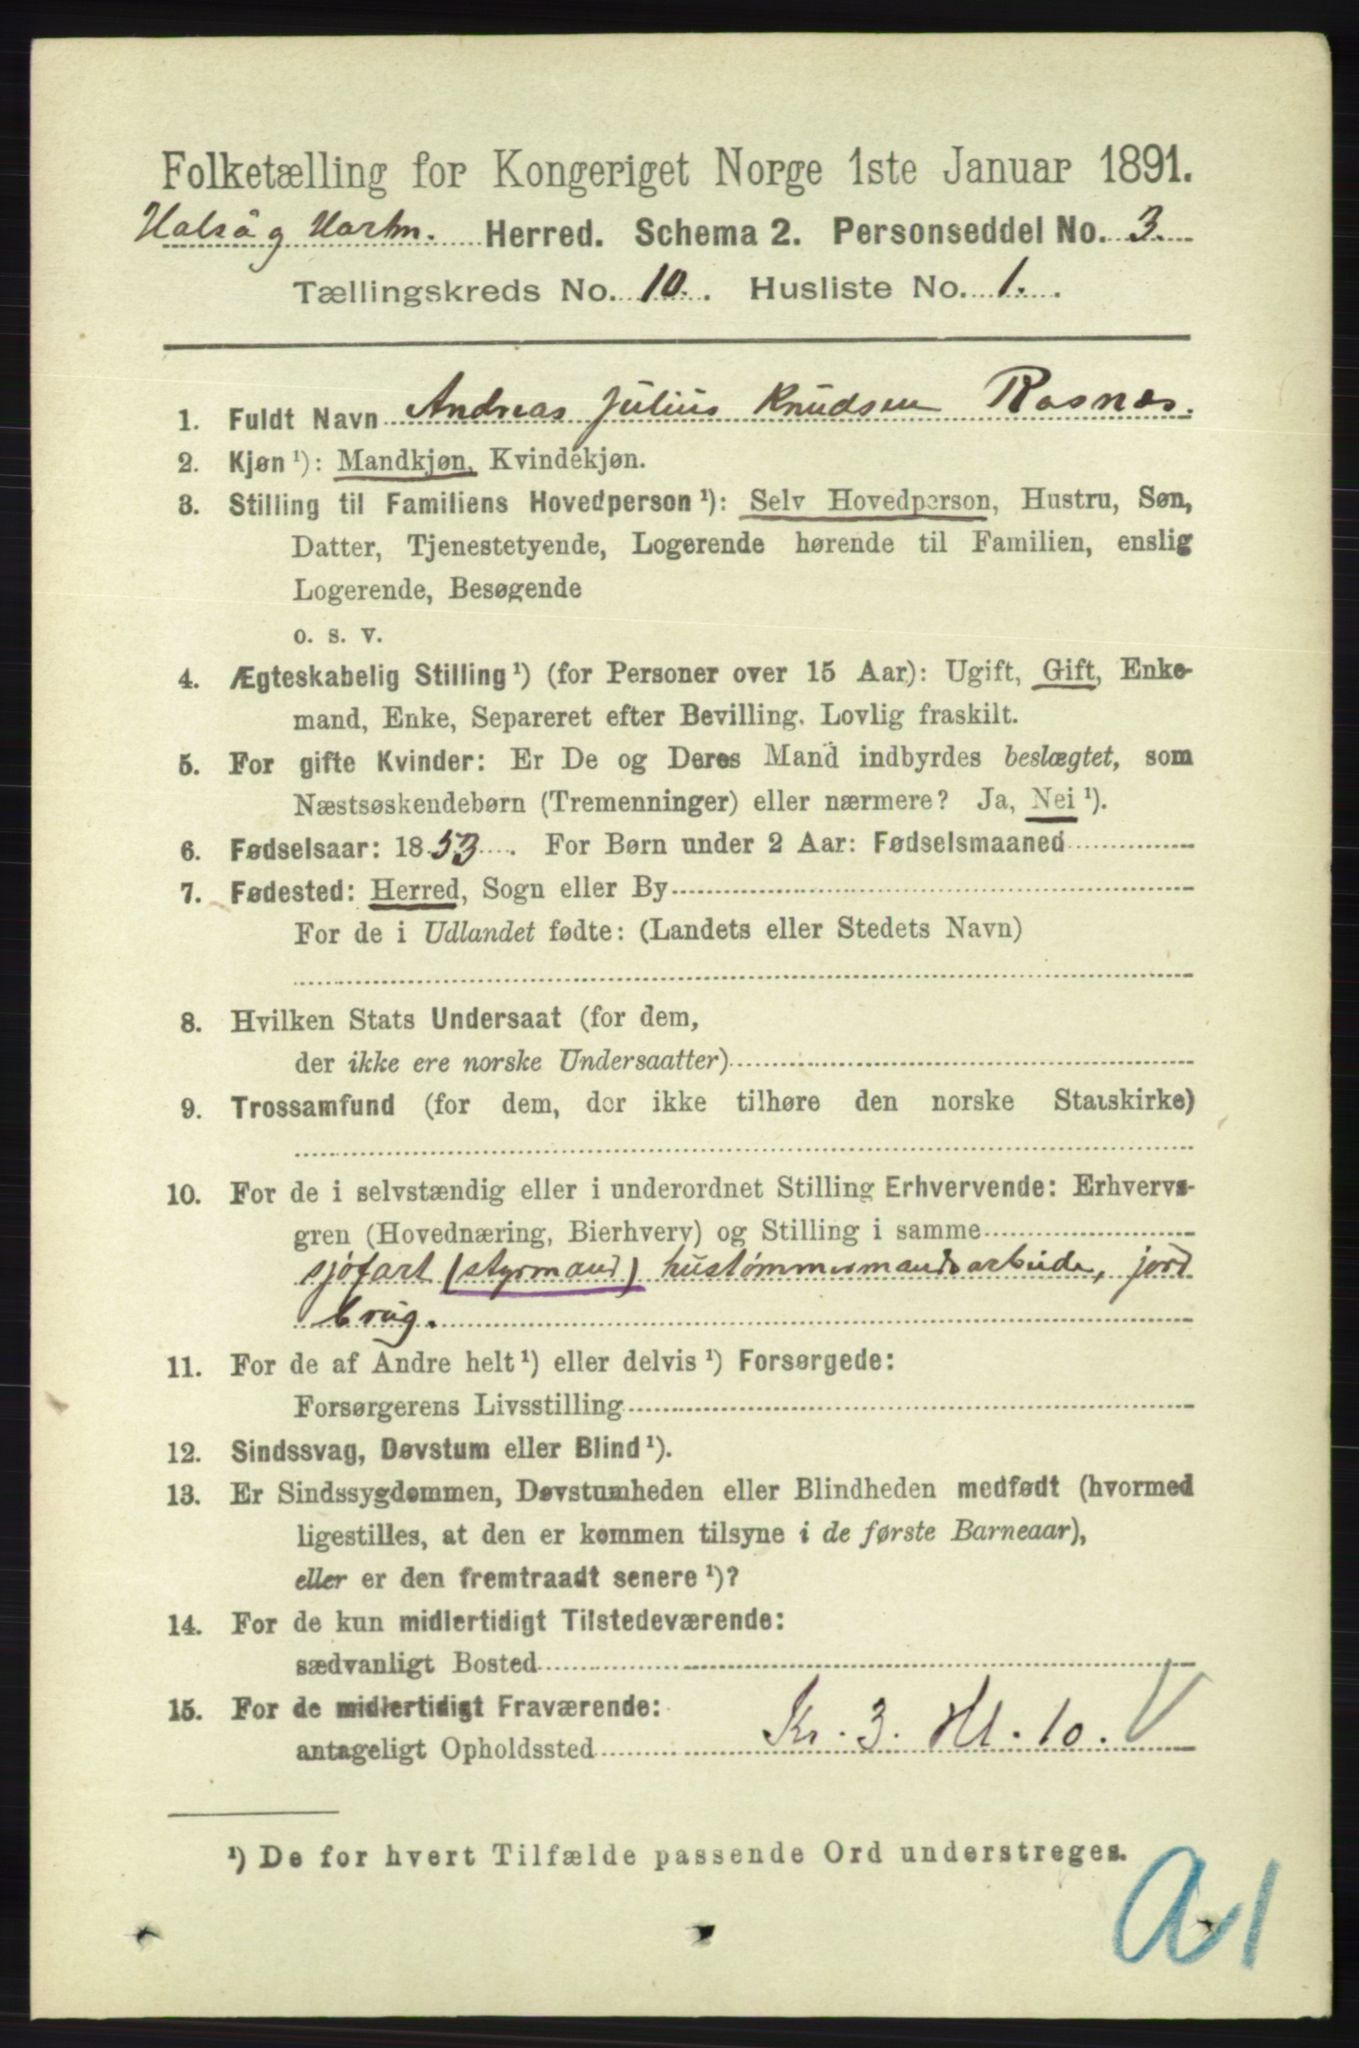 Folketælling for Kongeriget Norge 1ste Januar 1891.
Halså og Harkm. Herred. Schema 2. Personseddel No. 3.
Tællingskreds No. 10. Husliste No. 1.
1. Fuldt Navn Andreas Julius Knudsen Rosnæs.
2. Kjøn ¹): Mandkjøn, Kvindekjøn.
3. Stilling til Familiens Hovedperson ¹): Selv Hovedperson, Hustru, Søn,
Datter, Tjenestetyende, Logerende hørende til Familien, enslig
Logerende, Besøgende
o. s. v.
4. Ægteskabelig Stilling ¹) (for Personer over 15 Aar): Ugift, Gift, Enke-
mand, Enke, Separeret efter Bevilling. Lovlig fraskilt.
5. For gifte Kvinder: Er De og Deres Mand indbyrdes beslægtet, som
Næstsøskendebørn (Tremenninger) eller nærmere? Ja, Nei ¹).
6. Fødselsaar: 1853. For Børn under 2 Aar: Fødselsmaaned
7. Fødested: Herred, Sogn eller By
For de i Udlandet fødte: (Landets eller Stedets Navn)
8. Hvilken Stats Undersaat (for dem,
der ikke ere norske Undersaatter)
9. Trossamfund (for dem, der ikke tilhøre den norske Statskirke)
10. For de i selvstændig eller i underordnet Stilling Erhvervende: Erhvervs-
gren (Hovednæring, Bierhverv) og Stilling i samme
sjøfart (styrmand) hustømmermandsarbeide, jord
brug.
11. For de af Andre helt ¹) eller delvis ¹) Forsørgede:
Forsørgerens Livsstilling
12. Sindssvag, Døvstum eller Blind ¹).
13. Er Sindssygdommen, Døvstumheden eller Blindheden medfødt (hvormed
ligestilles, at den er kommen tilsyne i de første Barneaar),
eller er den fremtraadt senere ¹)?
14. For de kun midlertidigt Tilstedeværende:
sædvanligt Bosted
15. For de midlertidigt Fraværende:
antageligt Opholdssted Kr. 3. Hl. 10. V
¹) De for hvert Tilfælde passende Ord understreges.
A1